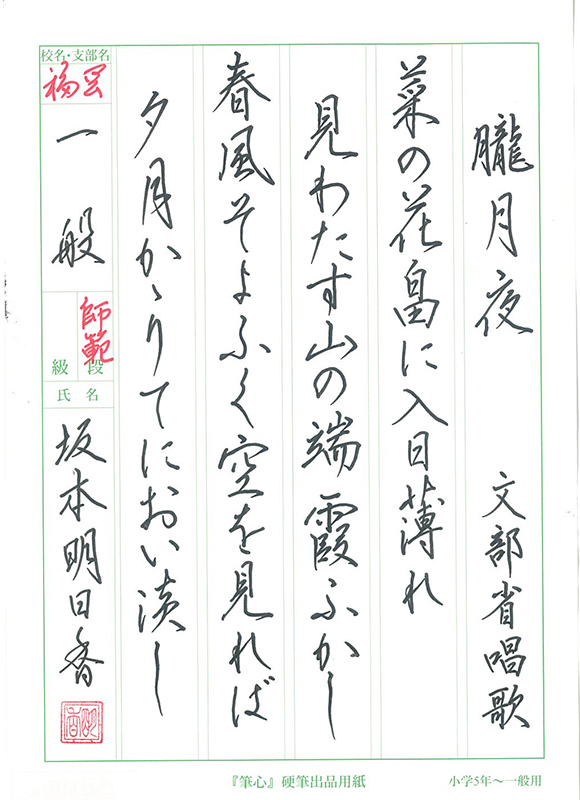 朧月夜 文部省唱歌
菜の花畠に入日薄れ
見わたす山の端霞ふかし
春風そよふく空を見れば
夕月かゝりてにおい淡し
校名・支部名
福岡
一般
師範
級 段
氏名
坂本明日香
『筆心』硬筆出品用紙
小学5年～一般用